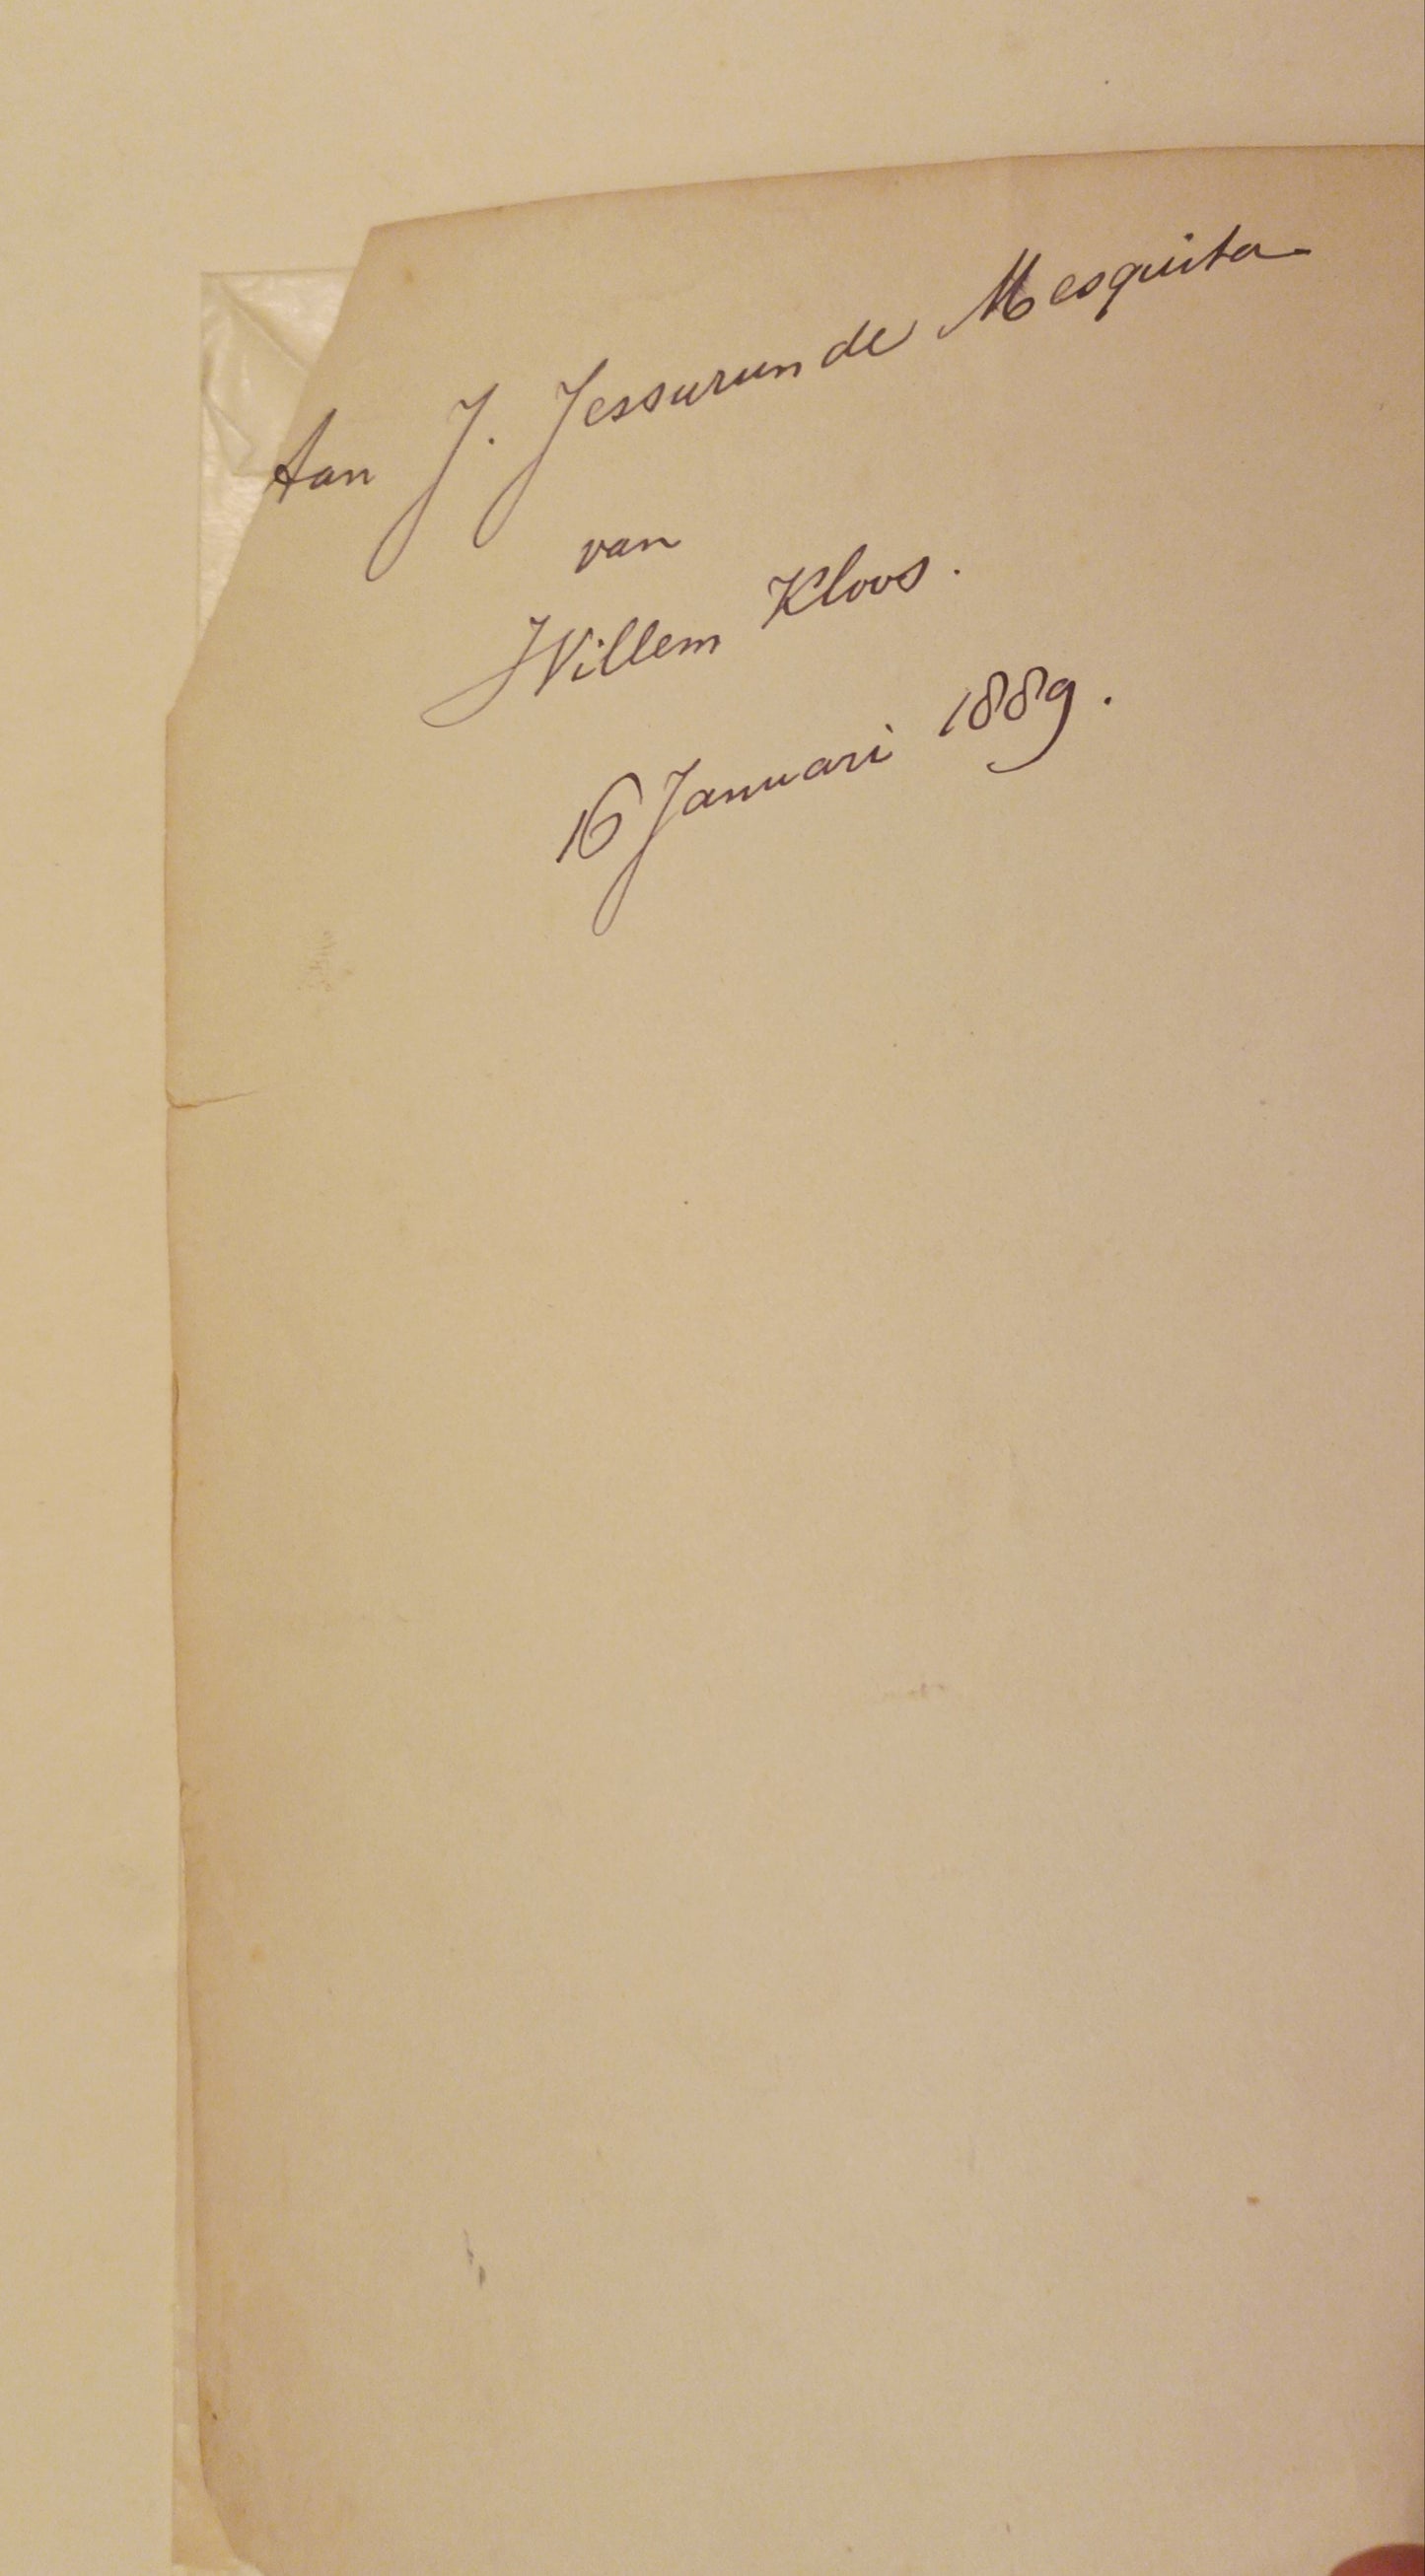 Aan J. Jessurun de Mesquita
van
Willem Kloos.
16 Januari 1889.